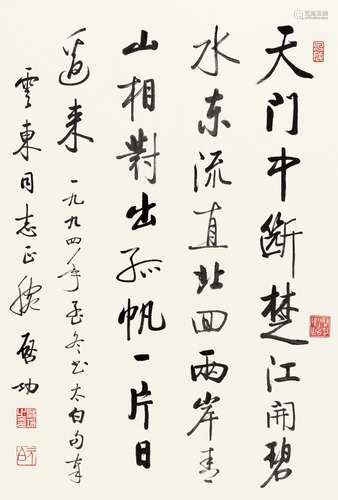 天門中斷楚江開碧
水東流直北回兩岸青
山相對出孤帆一片日
邊来 一九九四年孟冬书太白句奉
雲東同志正腕 啓功